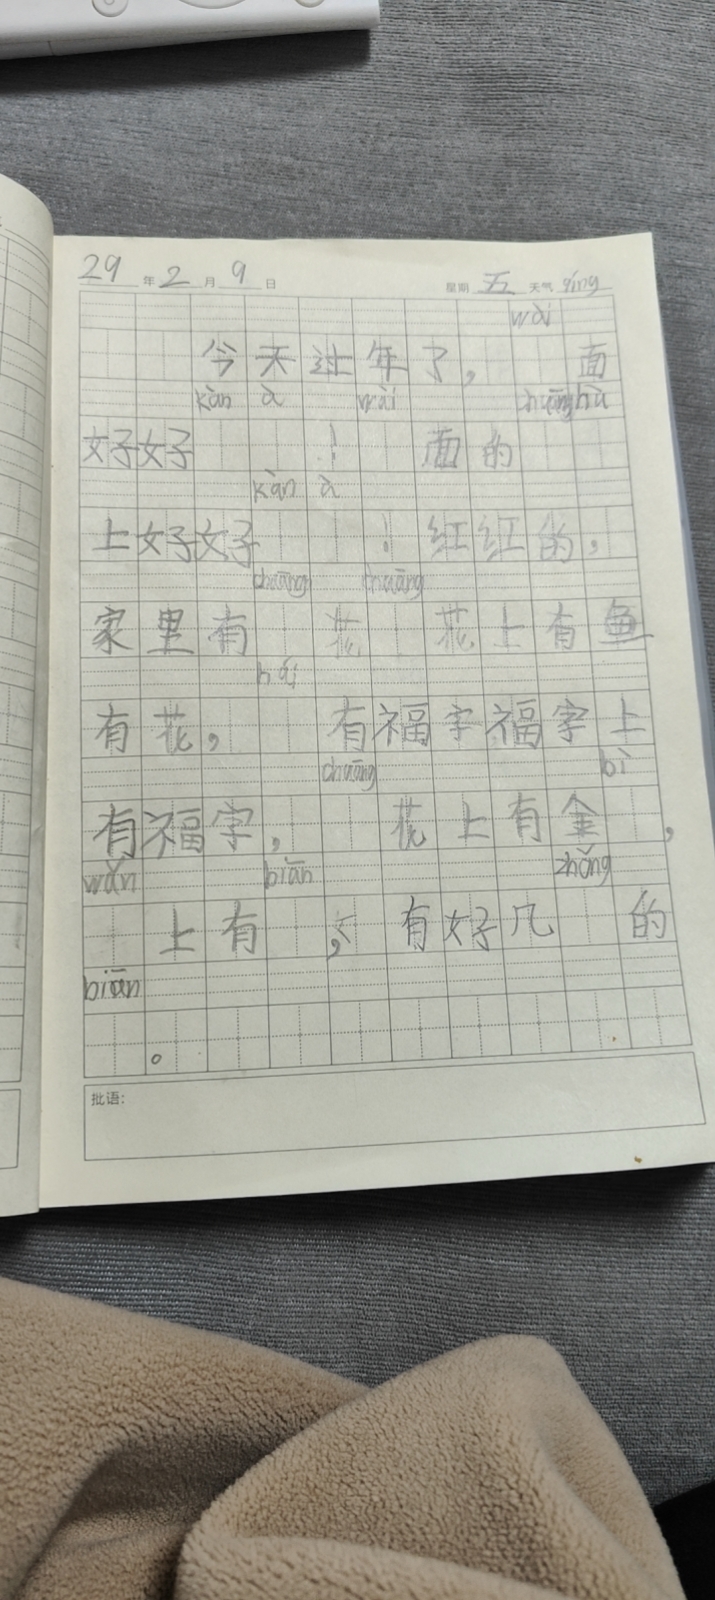 29年2月9日 星期五 天气 qíng
wài
今天过年了, 面
kàn à wài chuāng hù
好好 ! 面的
kàn à
上好好 ! 红红的,
chuāng chuāng
家里有 花 花上有鱼
hái
有花, 有福字福字上
chuāng bì
有福字, 花上有金 ,
wǎn biān zhǒng
上有 , 有好几 的
biān
。
批语: